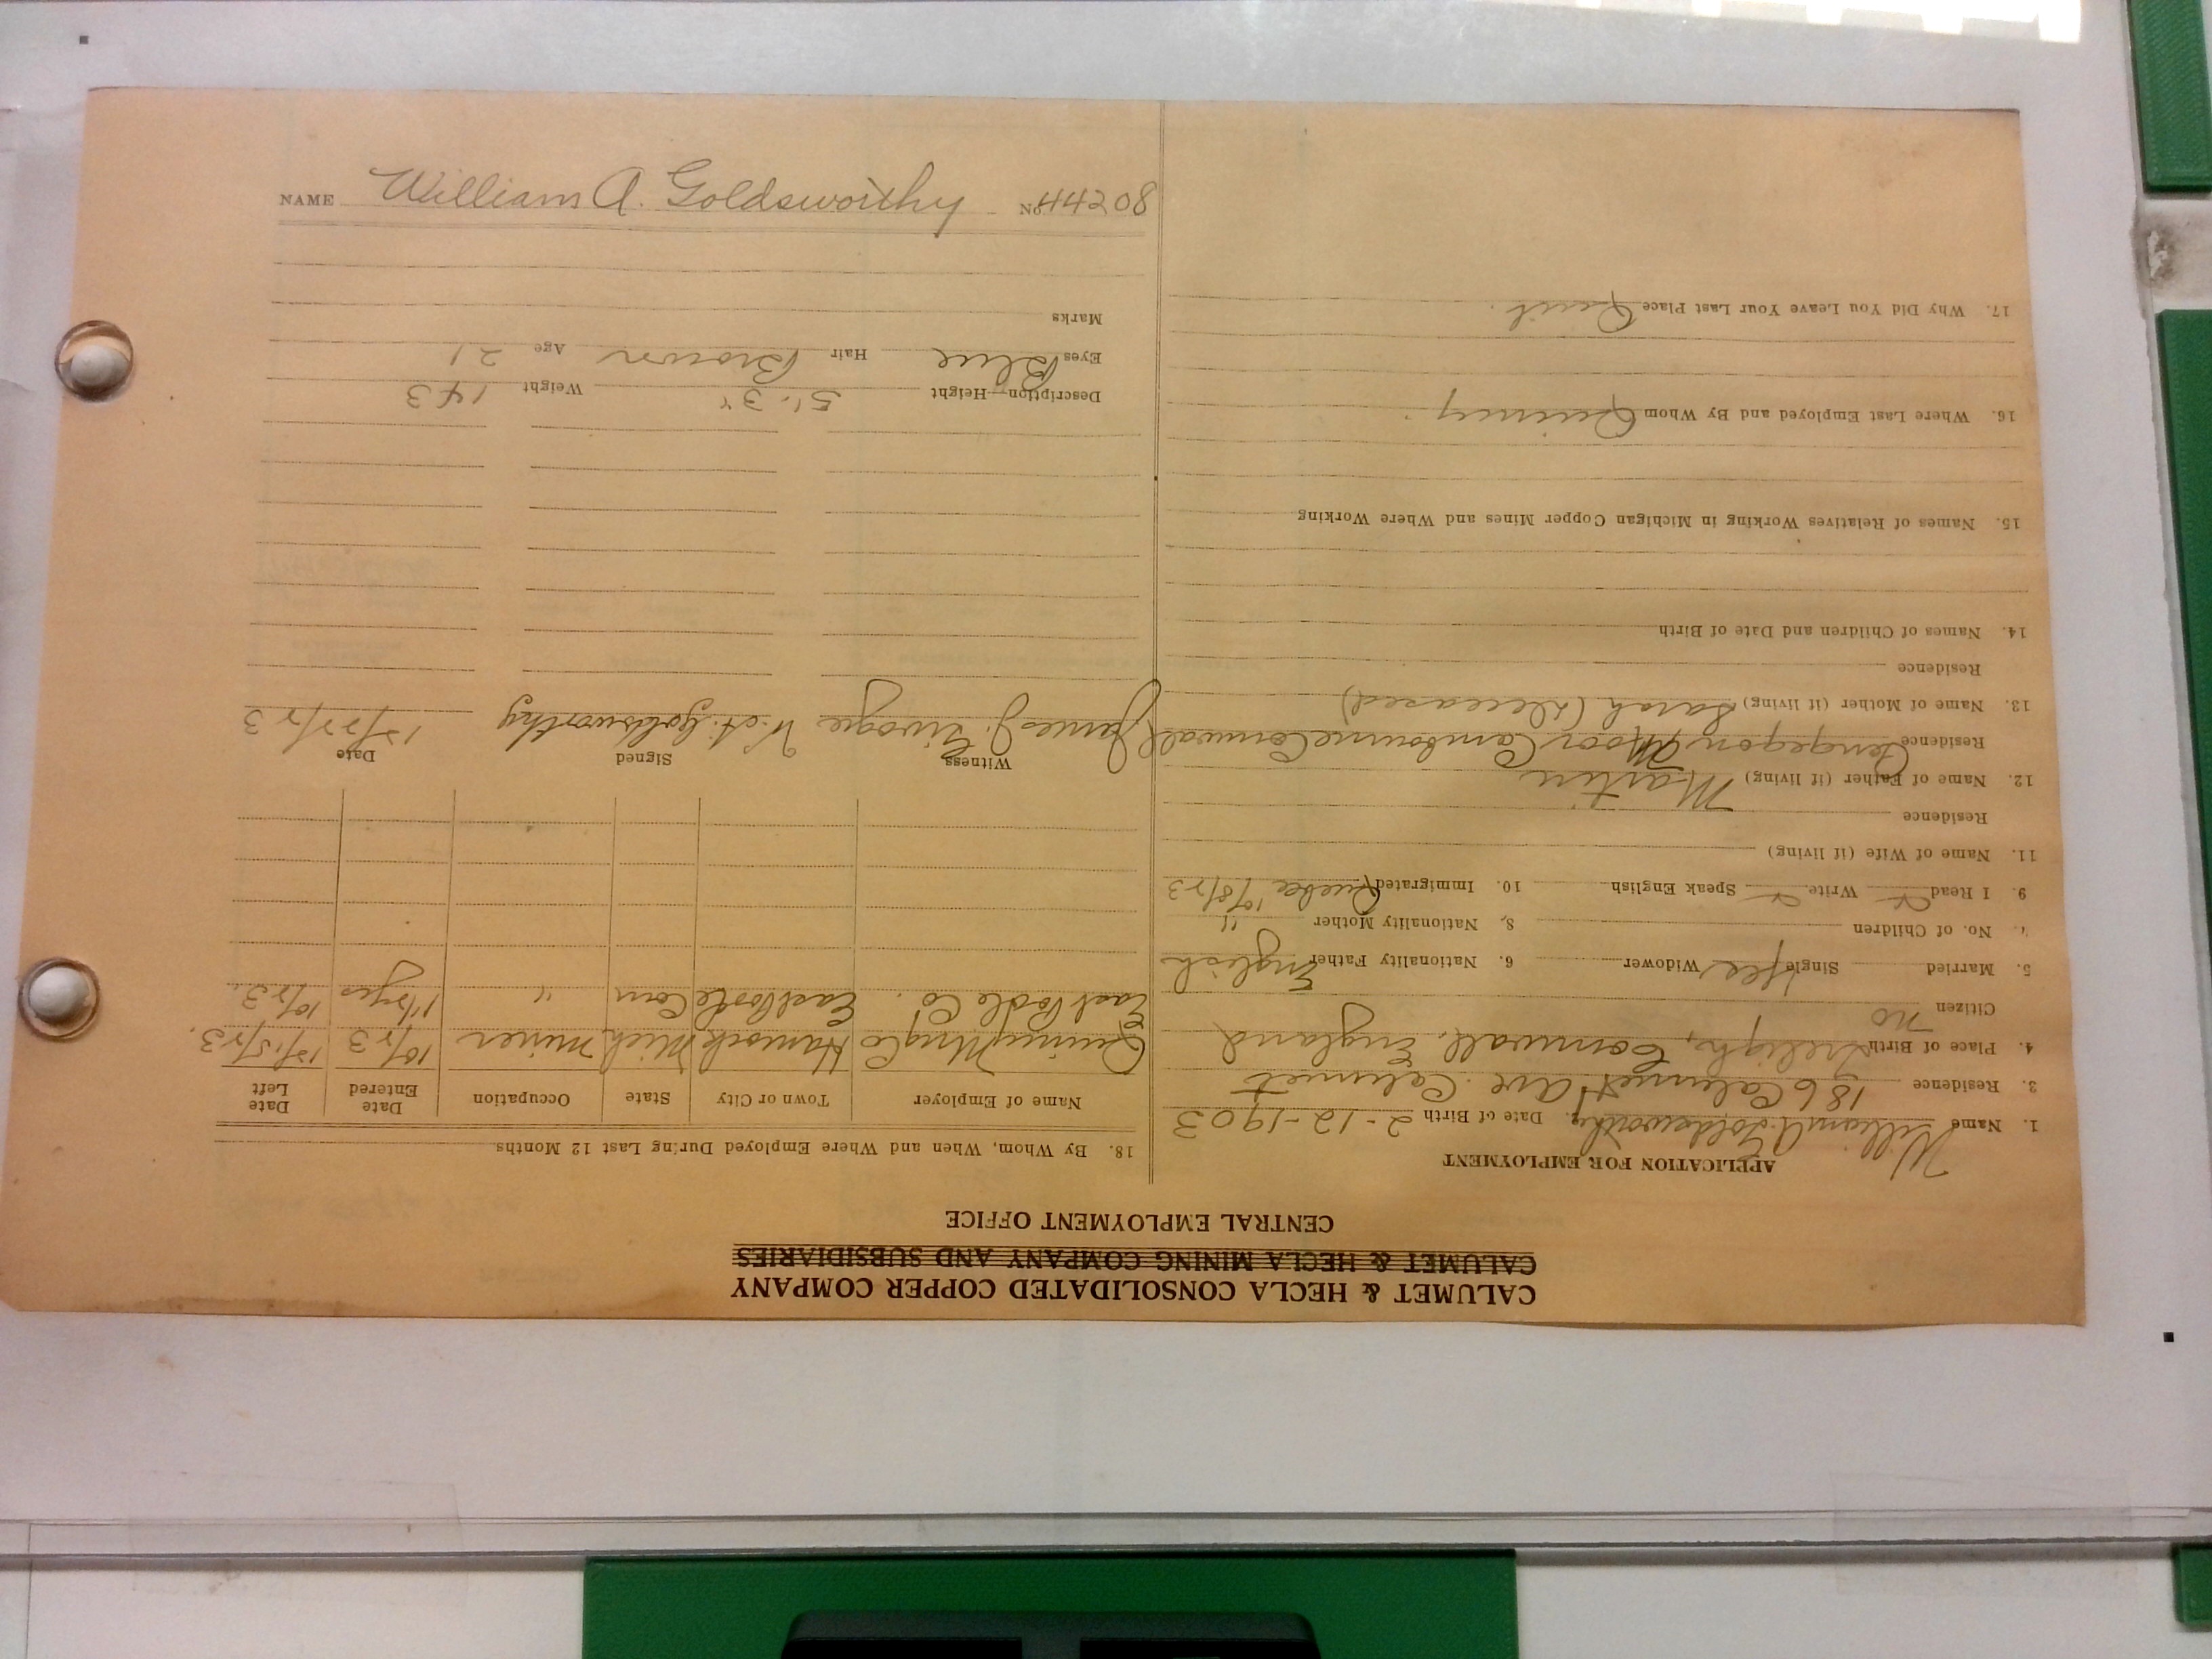 NAME William A. Goldsworthy No. 44208
CALUMET & HECLA CONSOLIDATED COPPER COMPANY
CALUMET & HECLA MINING COMPANY AND SUBSIDIARIES
CENTRAL EMPLOYMENT OFFICE
APPLICATION FOR EMPLOYMENT
1. Name William A. Goldsworthy 2. Date of Birth 2-12-1903
3. Residence 186 Calumet Ave. Calumet
4. Place of Birth Treleigh, Cornwall, England
Citizen no
5. Married Single Yes Widower 6. Nationality Father English
7. No. of Children 8. Nationality Mother "
9. I Read Write Speak English 10. Immigrated Quebec 10/8/23
11. Name of Wife (if living)
Residence
12. Name of Father (if living) Martin
Residence Pengegon Moor Cambourne Cornwall
13. Name of Mother (if living) Sarah (deceased)
Residence
14. Names of Children and Date of Birth
15. Names of Relatives Working in Michigan Copper Mines and Where Working
16. Where Last Employed and By Whom Quincy
17. Why Did You Leave Your Last Place Quit.
18. By Whom, When and Where Employed During Last 12 Months
Name of Employer Town or City State Occupation Date Entered Date Left
Quincy Mng Co Hancock Mich miner 10/23 12/15/23.
East Poole Co. East Poole Corn " 10/23.
Witness Signed Date
James J. W. A. Goldsworthy 12/27/23
Description—Height 5'-3" Weight 143
Eyes Blue Hair Brown Age 21
Marks